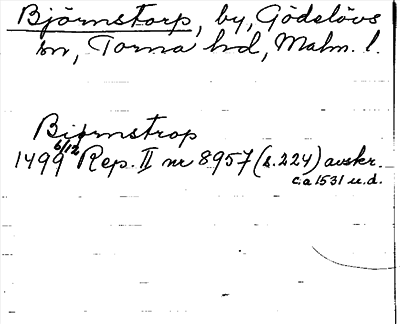 Björnstorp, by, Gödelövs
sn, Torna hd, Malm. l.
Biørnstrop
1499 6/12 Rep. II nr 8957 (s. 224) avskr.
ca 1531 u.d.